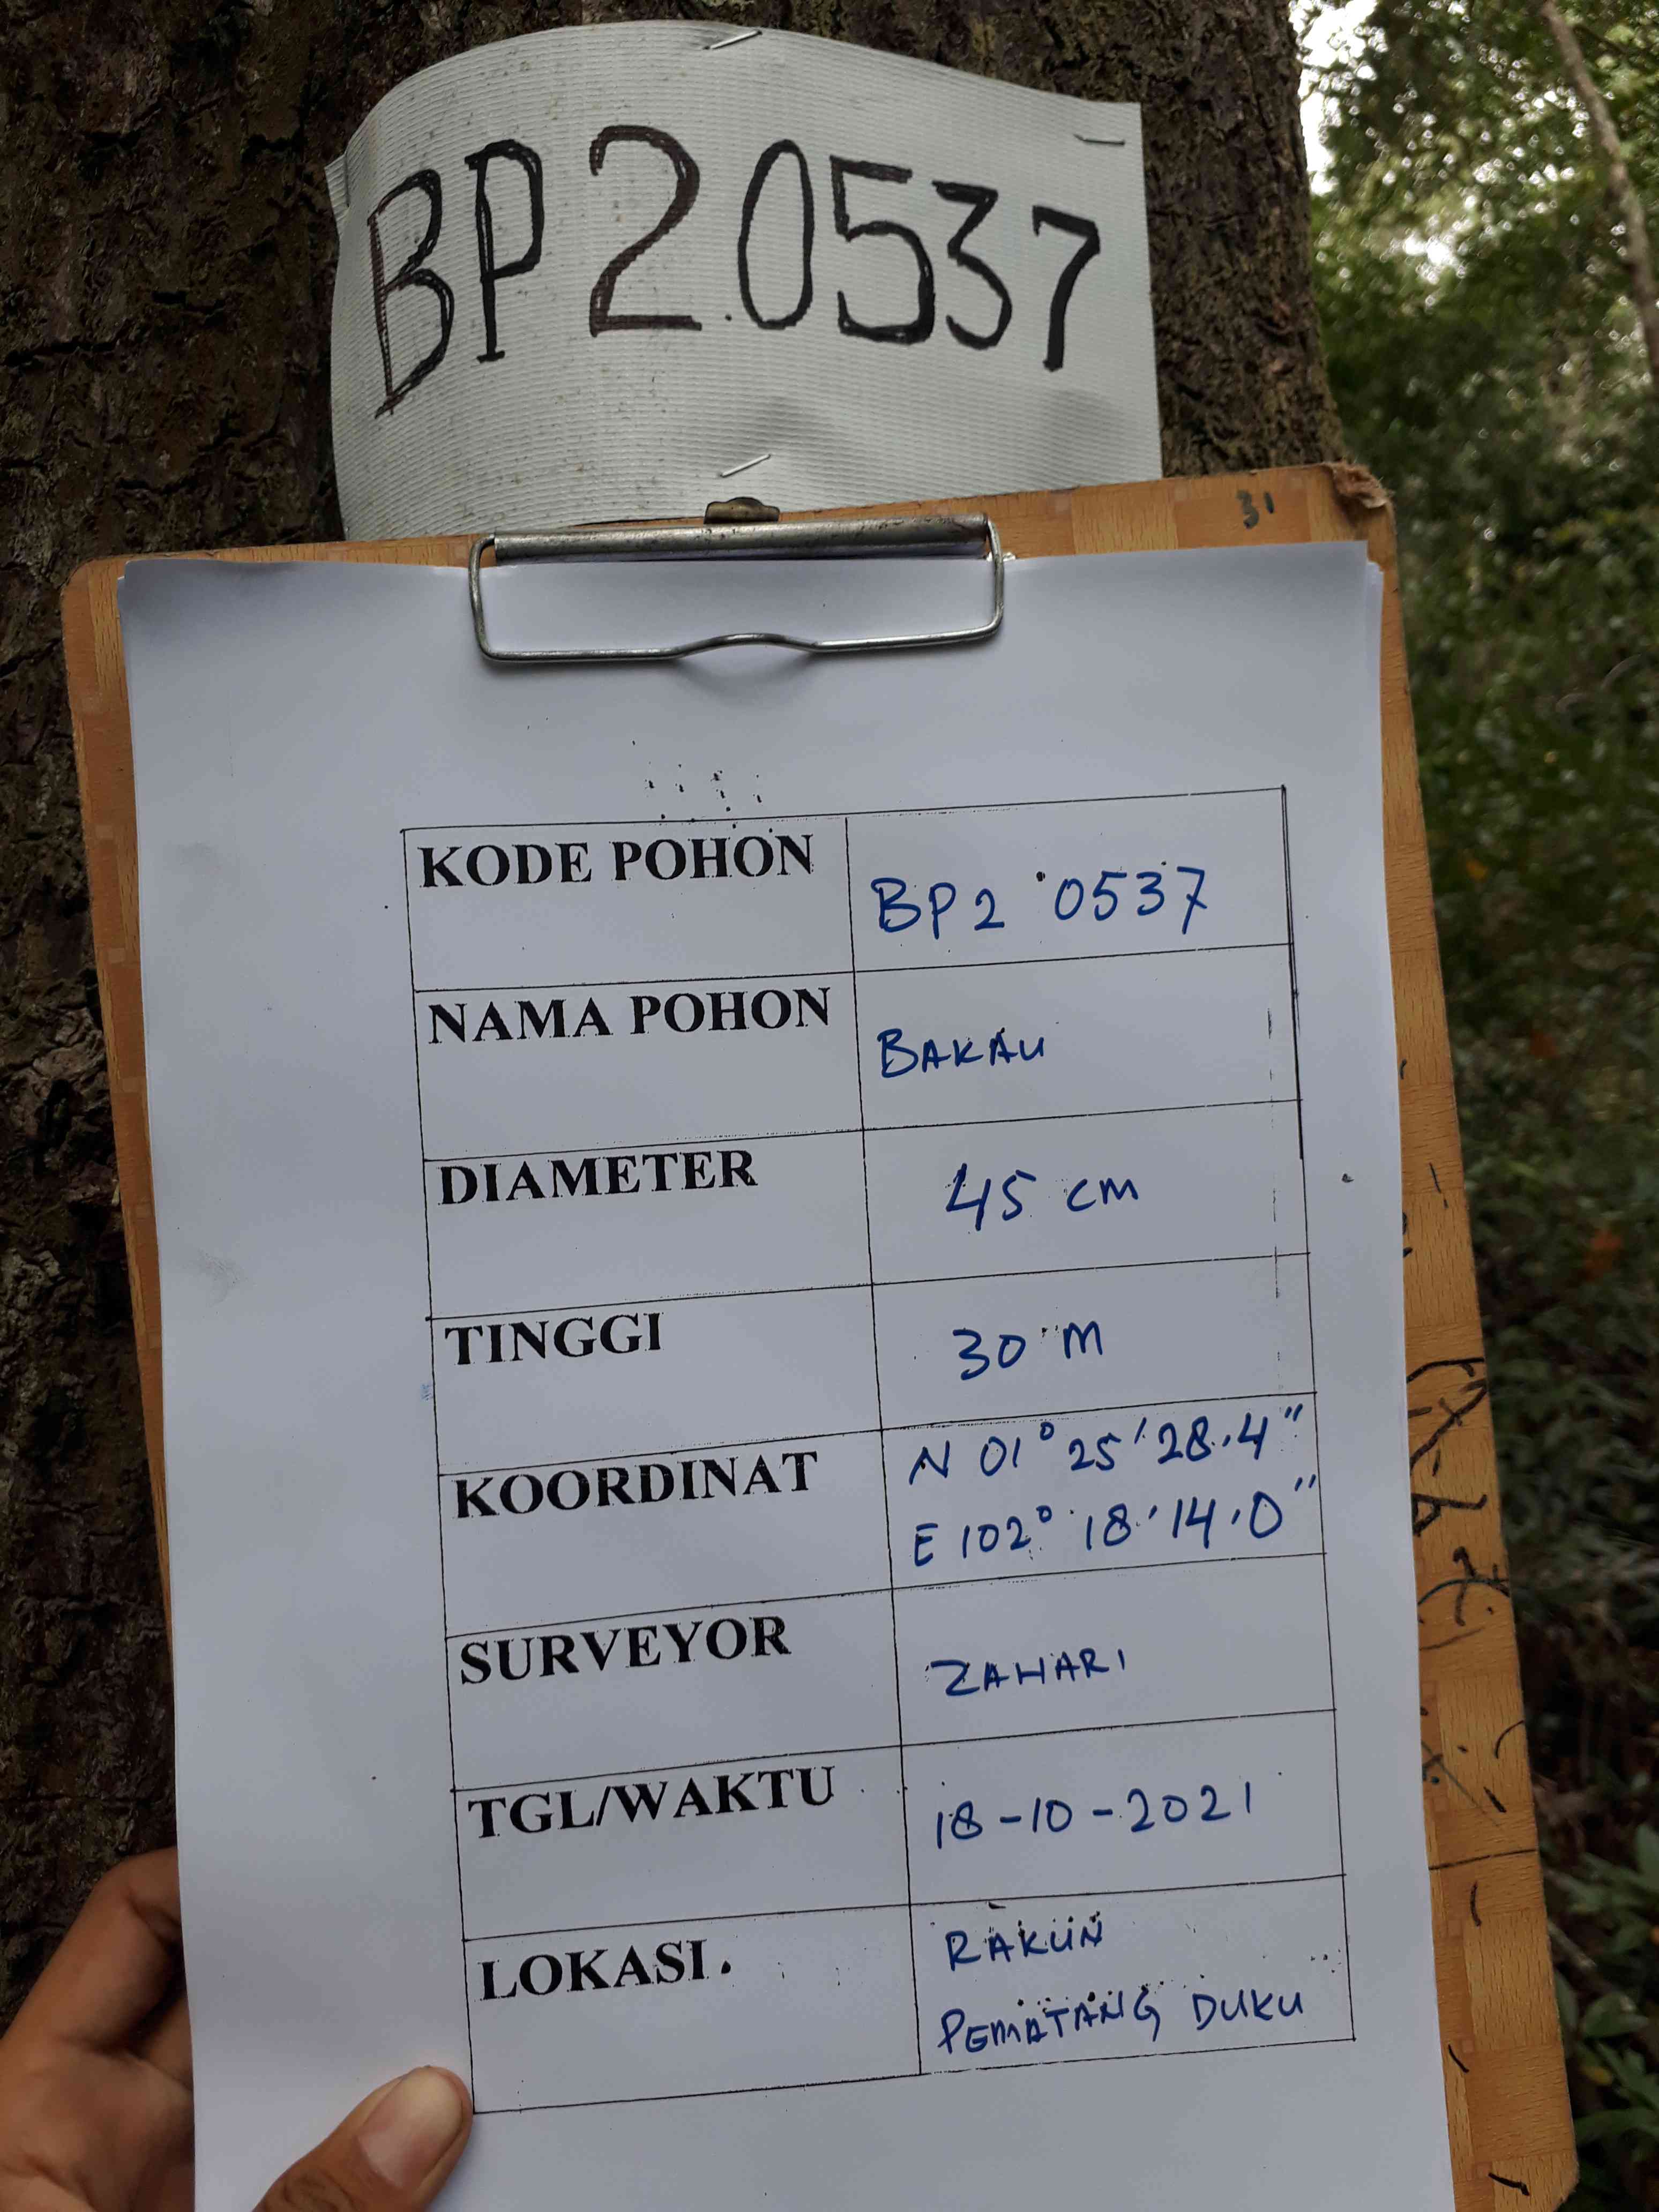 BP2.0537
31
KODE POHON BP2 0537
NAMA POHON BAKAU
DIAMETER 45 cm
TINGGI 30 m
KOORDINAT N 01° 25' 28.4"
E 102° 18' 14.0"
SURVEYOR ZAHARI
TGL/WAKTU 18-10-2021
LOKASI. RAKUN
PEMATANG DUKU